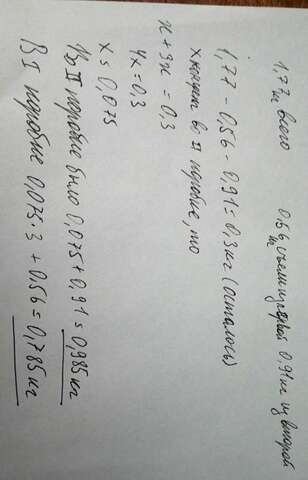 1,77 всего 0,56 съели из первой 0,91 кг из второй
1,77 - 0,56 - 0,91 = 0,3 кг (осталось)
x конфет во II коробке, то
x + 3x = 0,3
4x = 0,3
x = 0,075
Во II коробке было 0,075 + 0,91 = 0,985 кг
В I коробке 0,075 · 3 + 0,56 = 0,785 кг